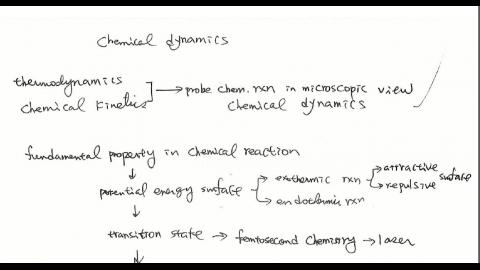 Chemical dynamics
thermodynamics
Chemical Kinetics → probe chem. rxn in microscopic view
Chemical dynamics
fundamental property in chemical reaction
↓
potential energy surface exothermic rxn → attractive surface
→ repulsive
endothermic rxn
↓
transition state → femtosecond chemistry → laser
↓